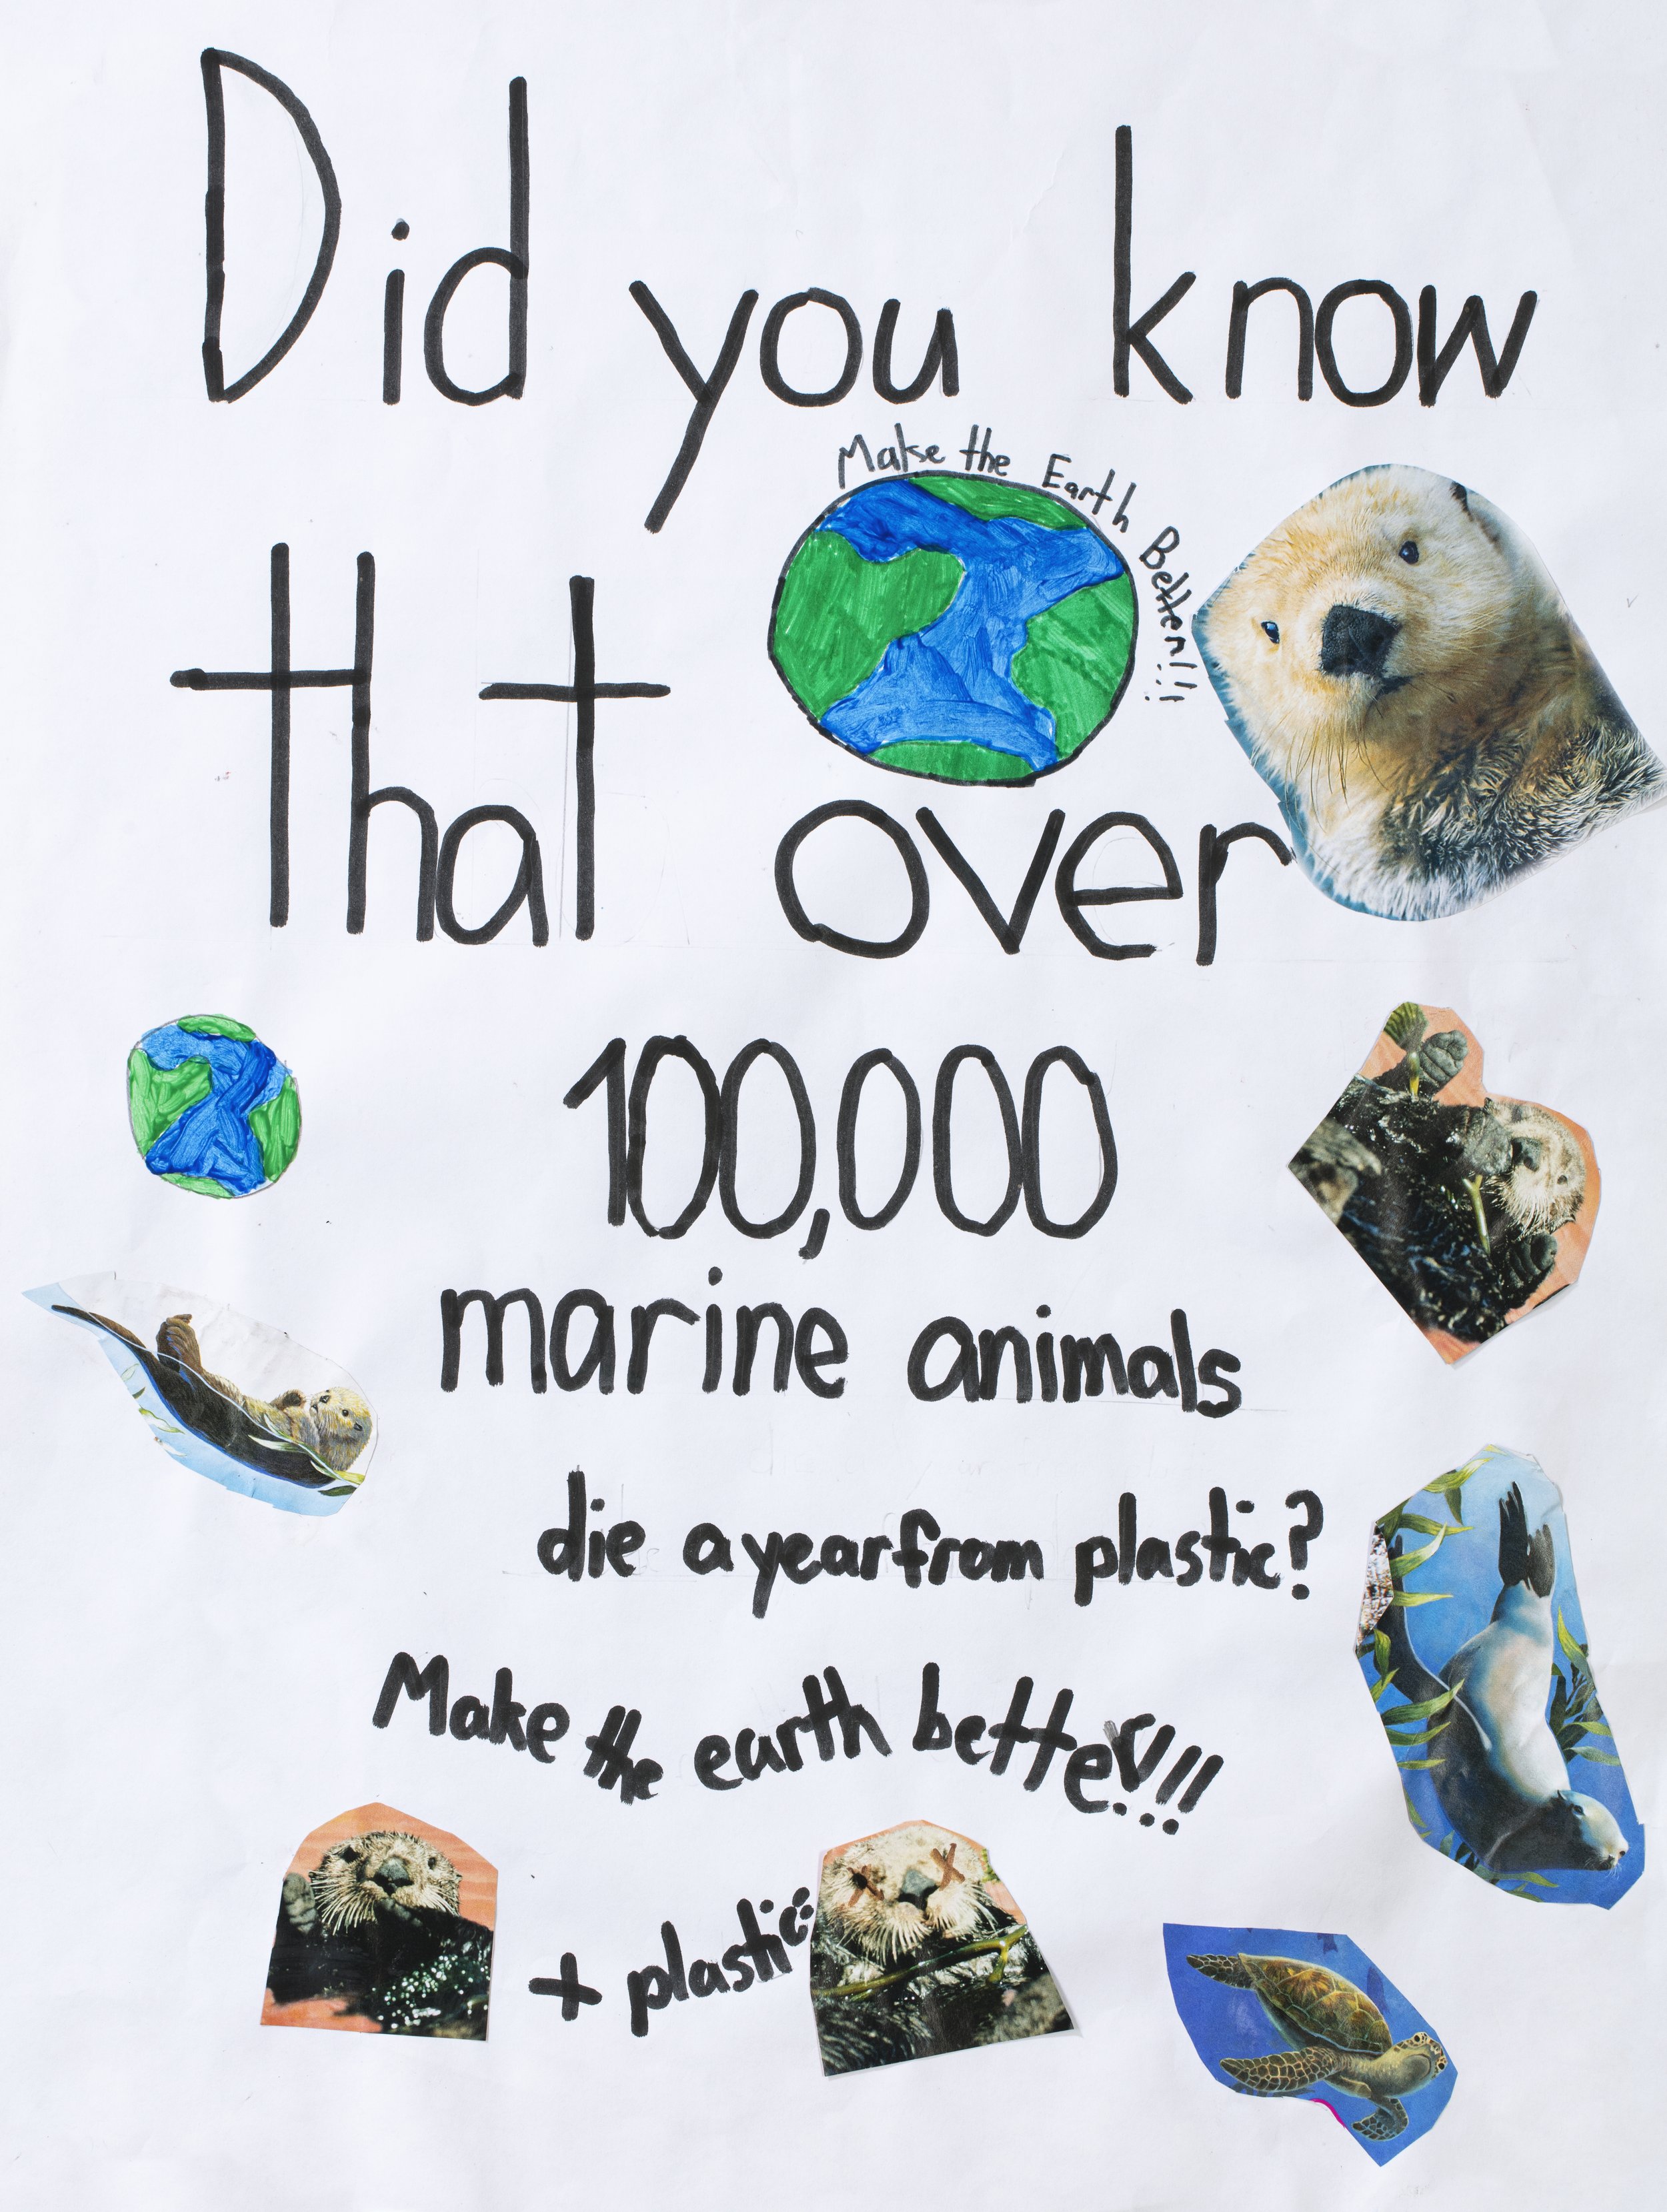 Did you know
Make the Earth Better!!!
that over
100,000
marine animals
die a year from plastic?
Make the earth better!!!
+ plastic=